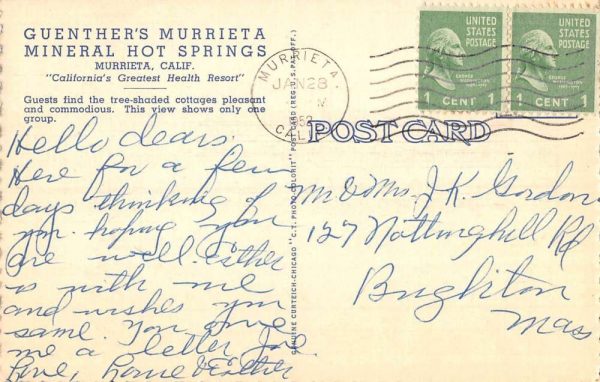 GUENTHER'S MURRIETA
MINERAL HOT SPRINGS
MURRIETA, CALIF.
"California's Greatest Health Resort"
Guests find the tree-shaded cottages pleasant
and commodious. This view shows only one
group.
Hello dears.
Here for a few
days thinking of
you. hoping you
are well. Esther
is with me
and wishes you
same. You owe
me a letter Joe
Love,
& Esther
GENUINE CURTEICH-CHICAGO "C.T. PHOTO-COLORIT" POST CARD (REG. U.S. PAT. OFF.)
MURRIETA
JAN 28
M
1952
CALIF
UNITED
STATES
POSTAGE
GEORGE
WASHINGTON
1 CENT 1
UNITED
STATES
POSTAGE
GEORGE
WASHINGTON
1 CENT 1
POST CARD
Mr & Mrs. J. K. Gordon
127 Nottinghill Rd
Brighton
Mass